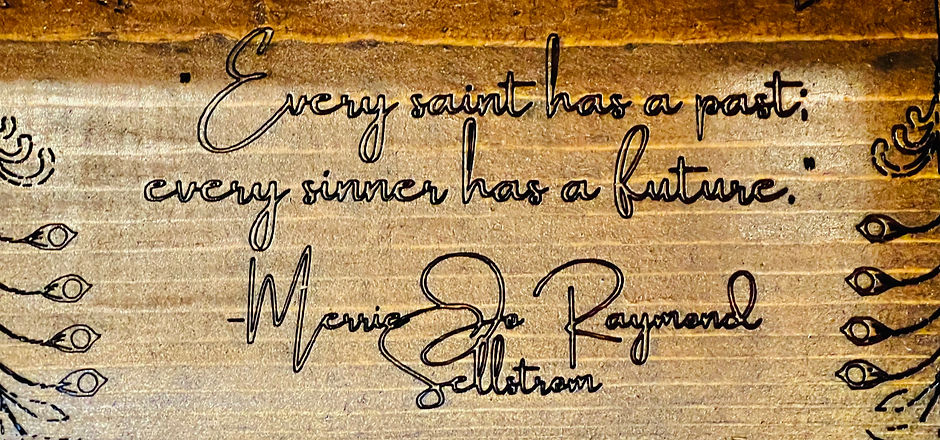 "Every saint has a past;
every sinner has a future."
-Merrie Jo Raymond
Sellstrom